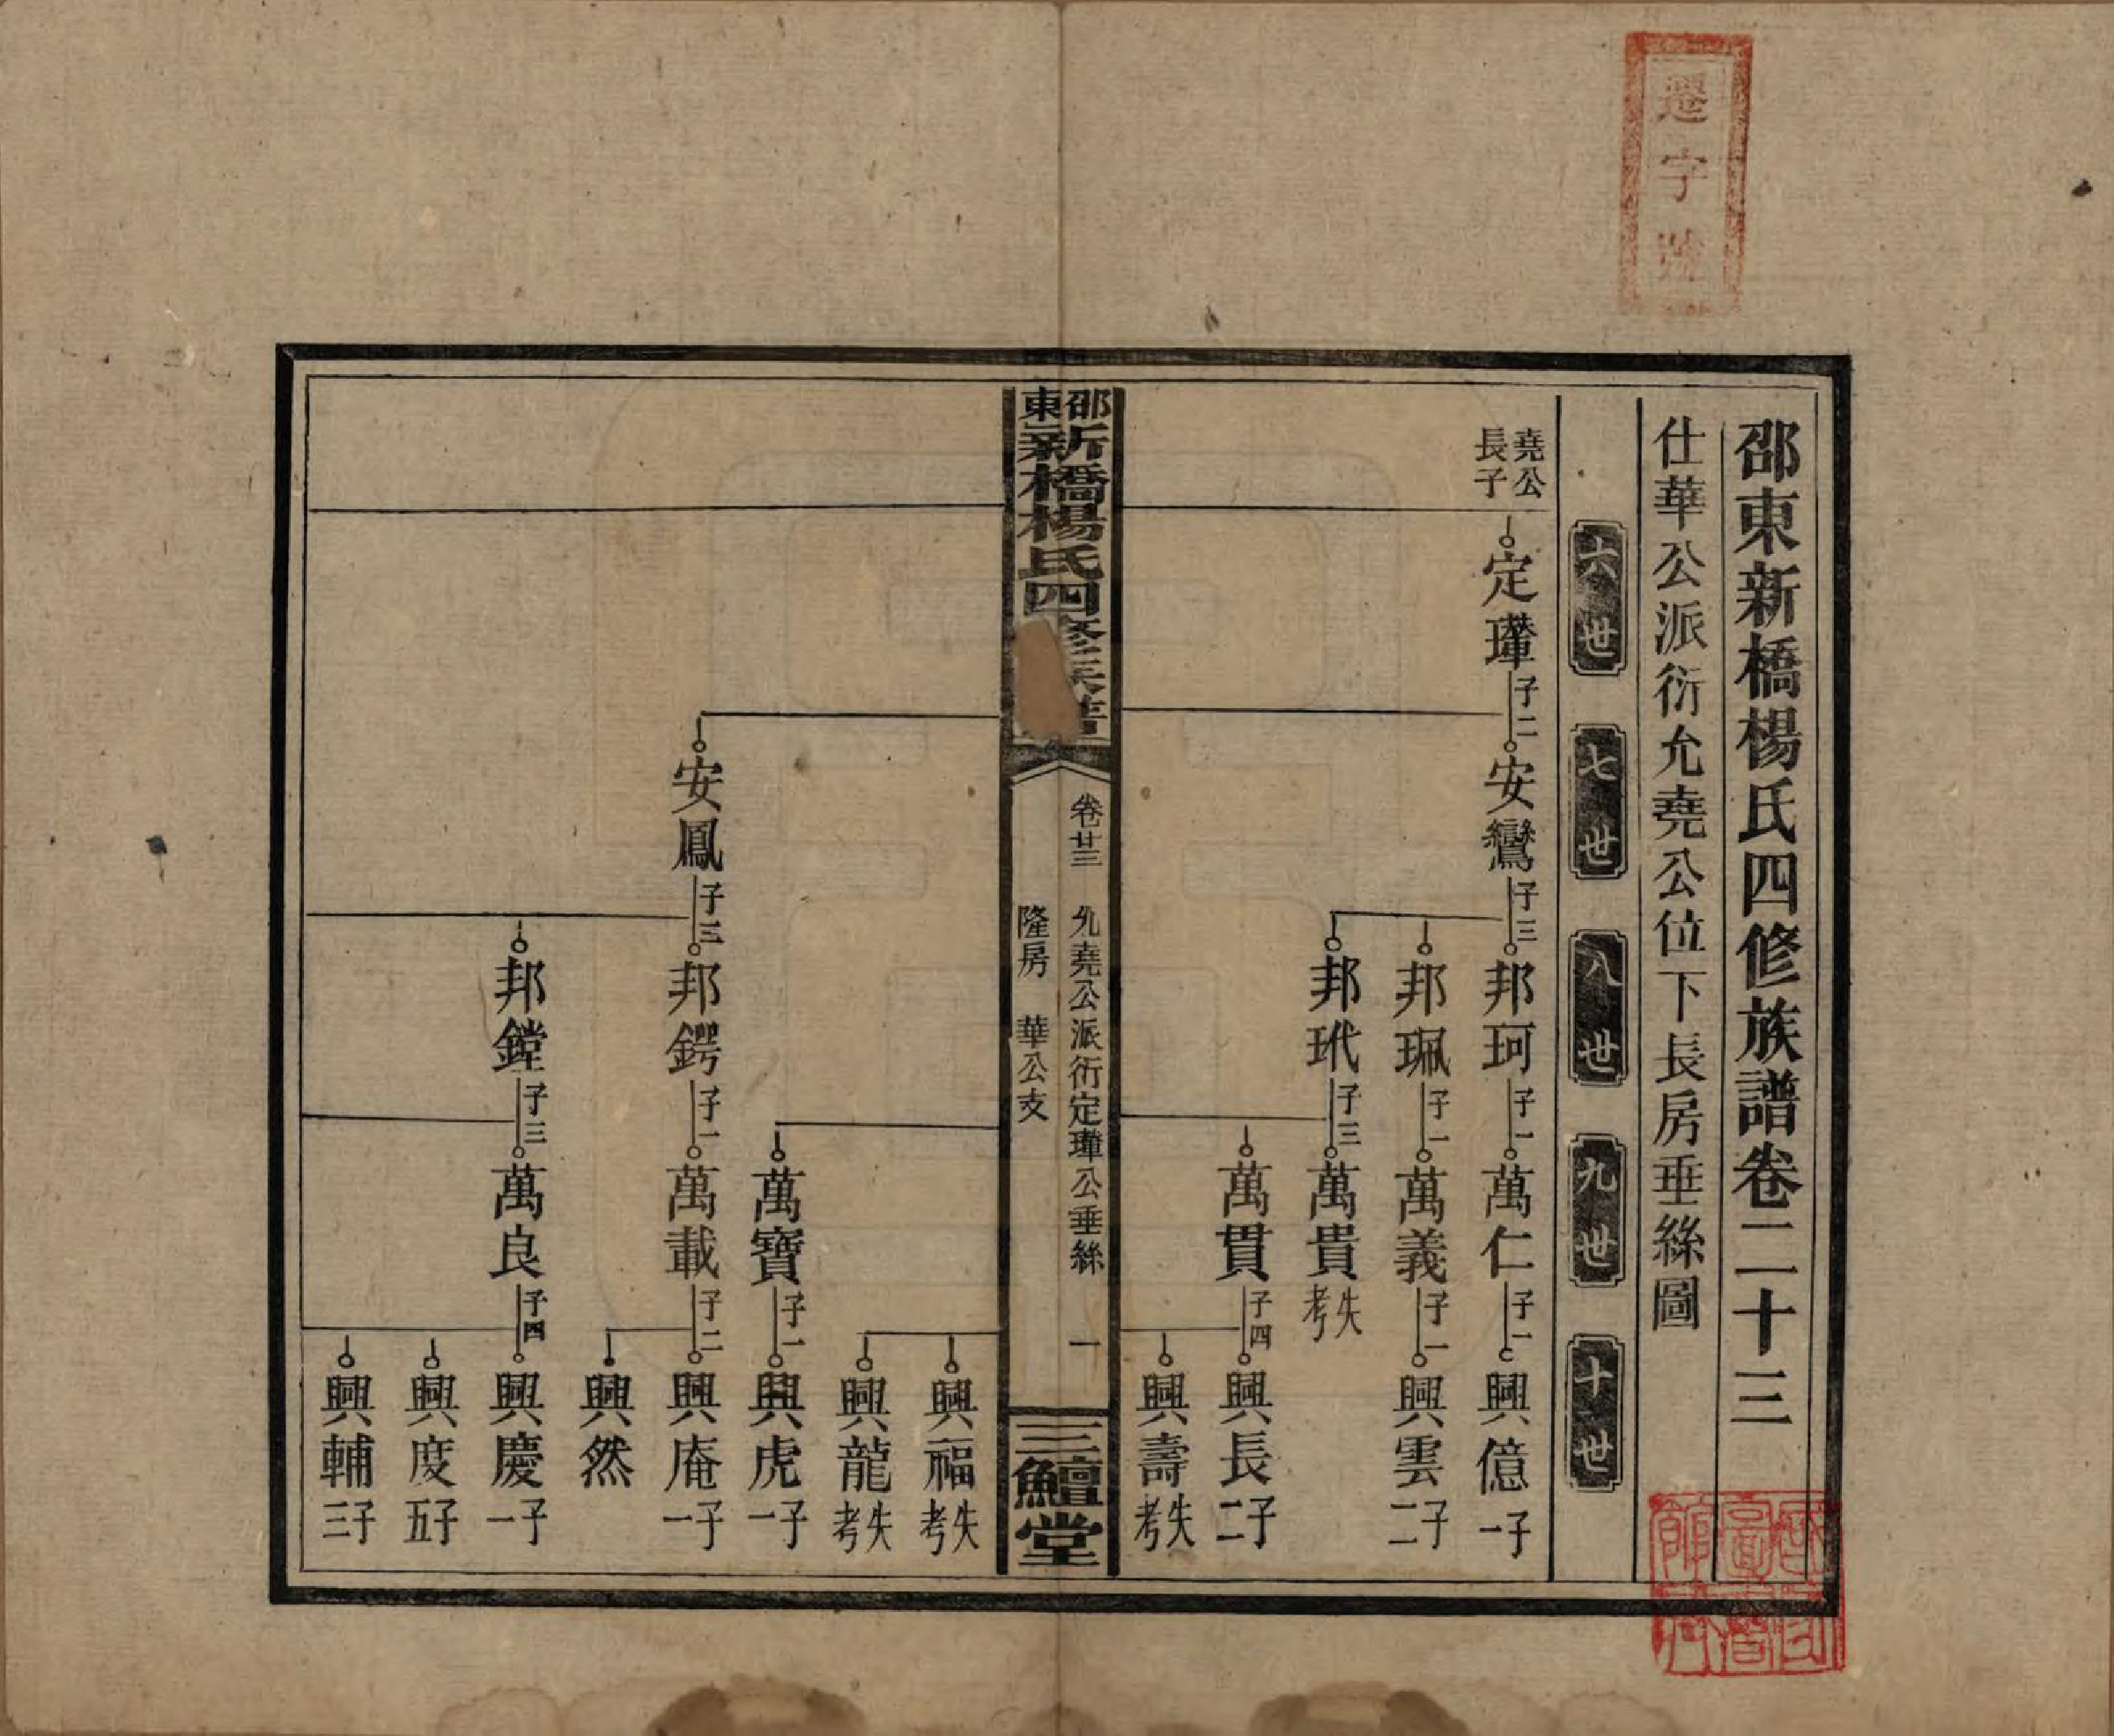 遷字號
邵東新橋楊氏四修族譜卷二十三
仕華公派衍允堯公位下長房垂絲圖
六世
七世
八世
九世
十世
堯公長子
定瑾 子二
安鸞 子三
邦珂 子一
萬仁 子一
興億 子一
邦珮 子一
萬義 子一
興雲 子二
邦玳 子三
萬貴 失考
萬貫 子四
興長 子二
興壽 失考
邵東新橋楊氏四修族譜
卷廿三
允堯公派衍定瑾公垂絲
隆房 華公支
一
三鱣堂
興福 失考
興龍 失考
萬寶 子一
興虎 子一
安鳳 子三
邦鍔 子一
萬載 子二
興庵 子一
興然
邦鏜 子三
萬良 子四
興慶 子一
興度 子五
興輔 子三